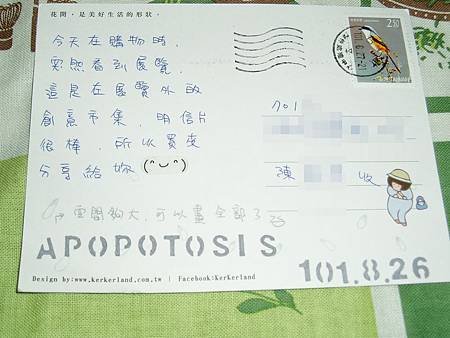 花開，是美好生活的形狀。
今天在購物時，
突然看到展覽，
這是在展覽外的
創意市集，明信片
很棒，所以買來
分享給妳(^⌣^)
空間夠大，可以畫全部了
APOPOTOSIS
Design by:www.kerkerland.com.tw | Facebook:KerKerland
250
701
陳 收
101.8.26